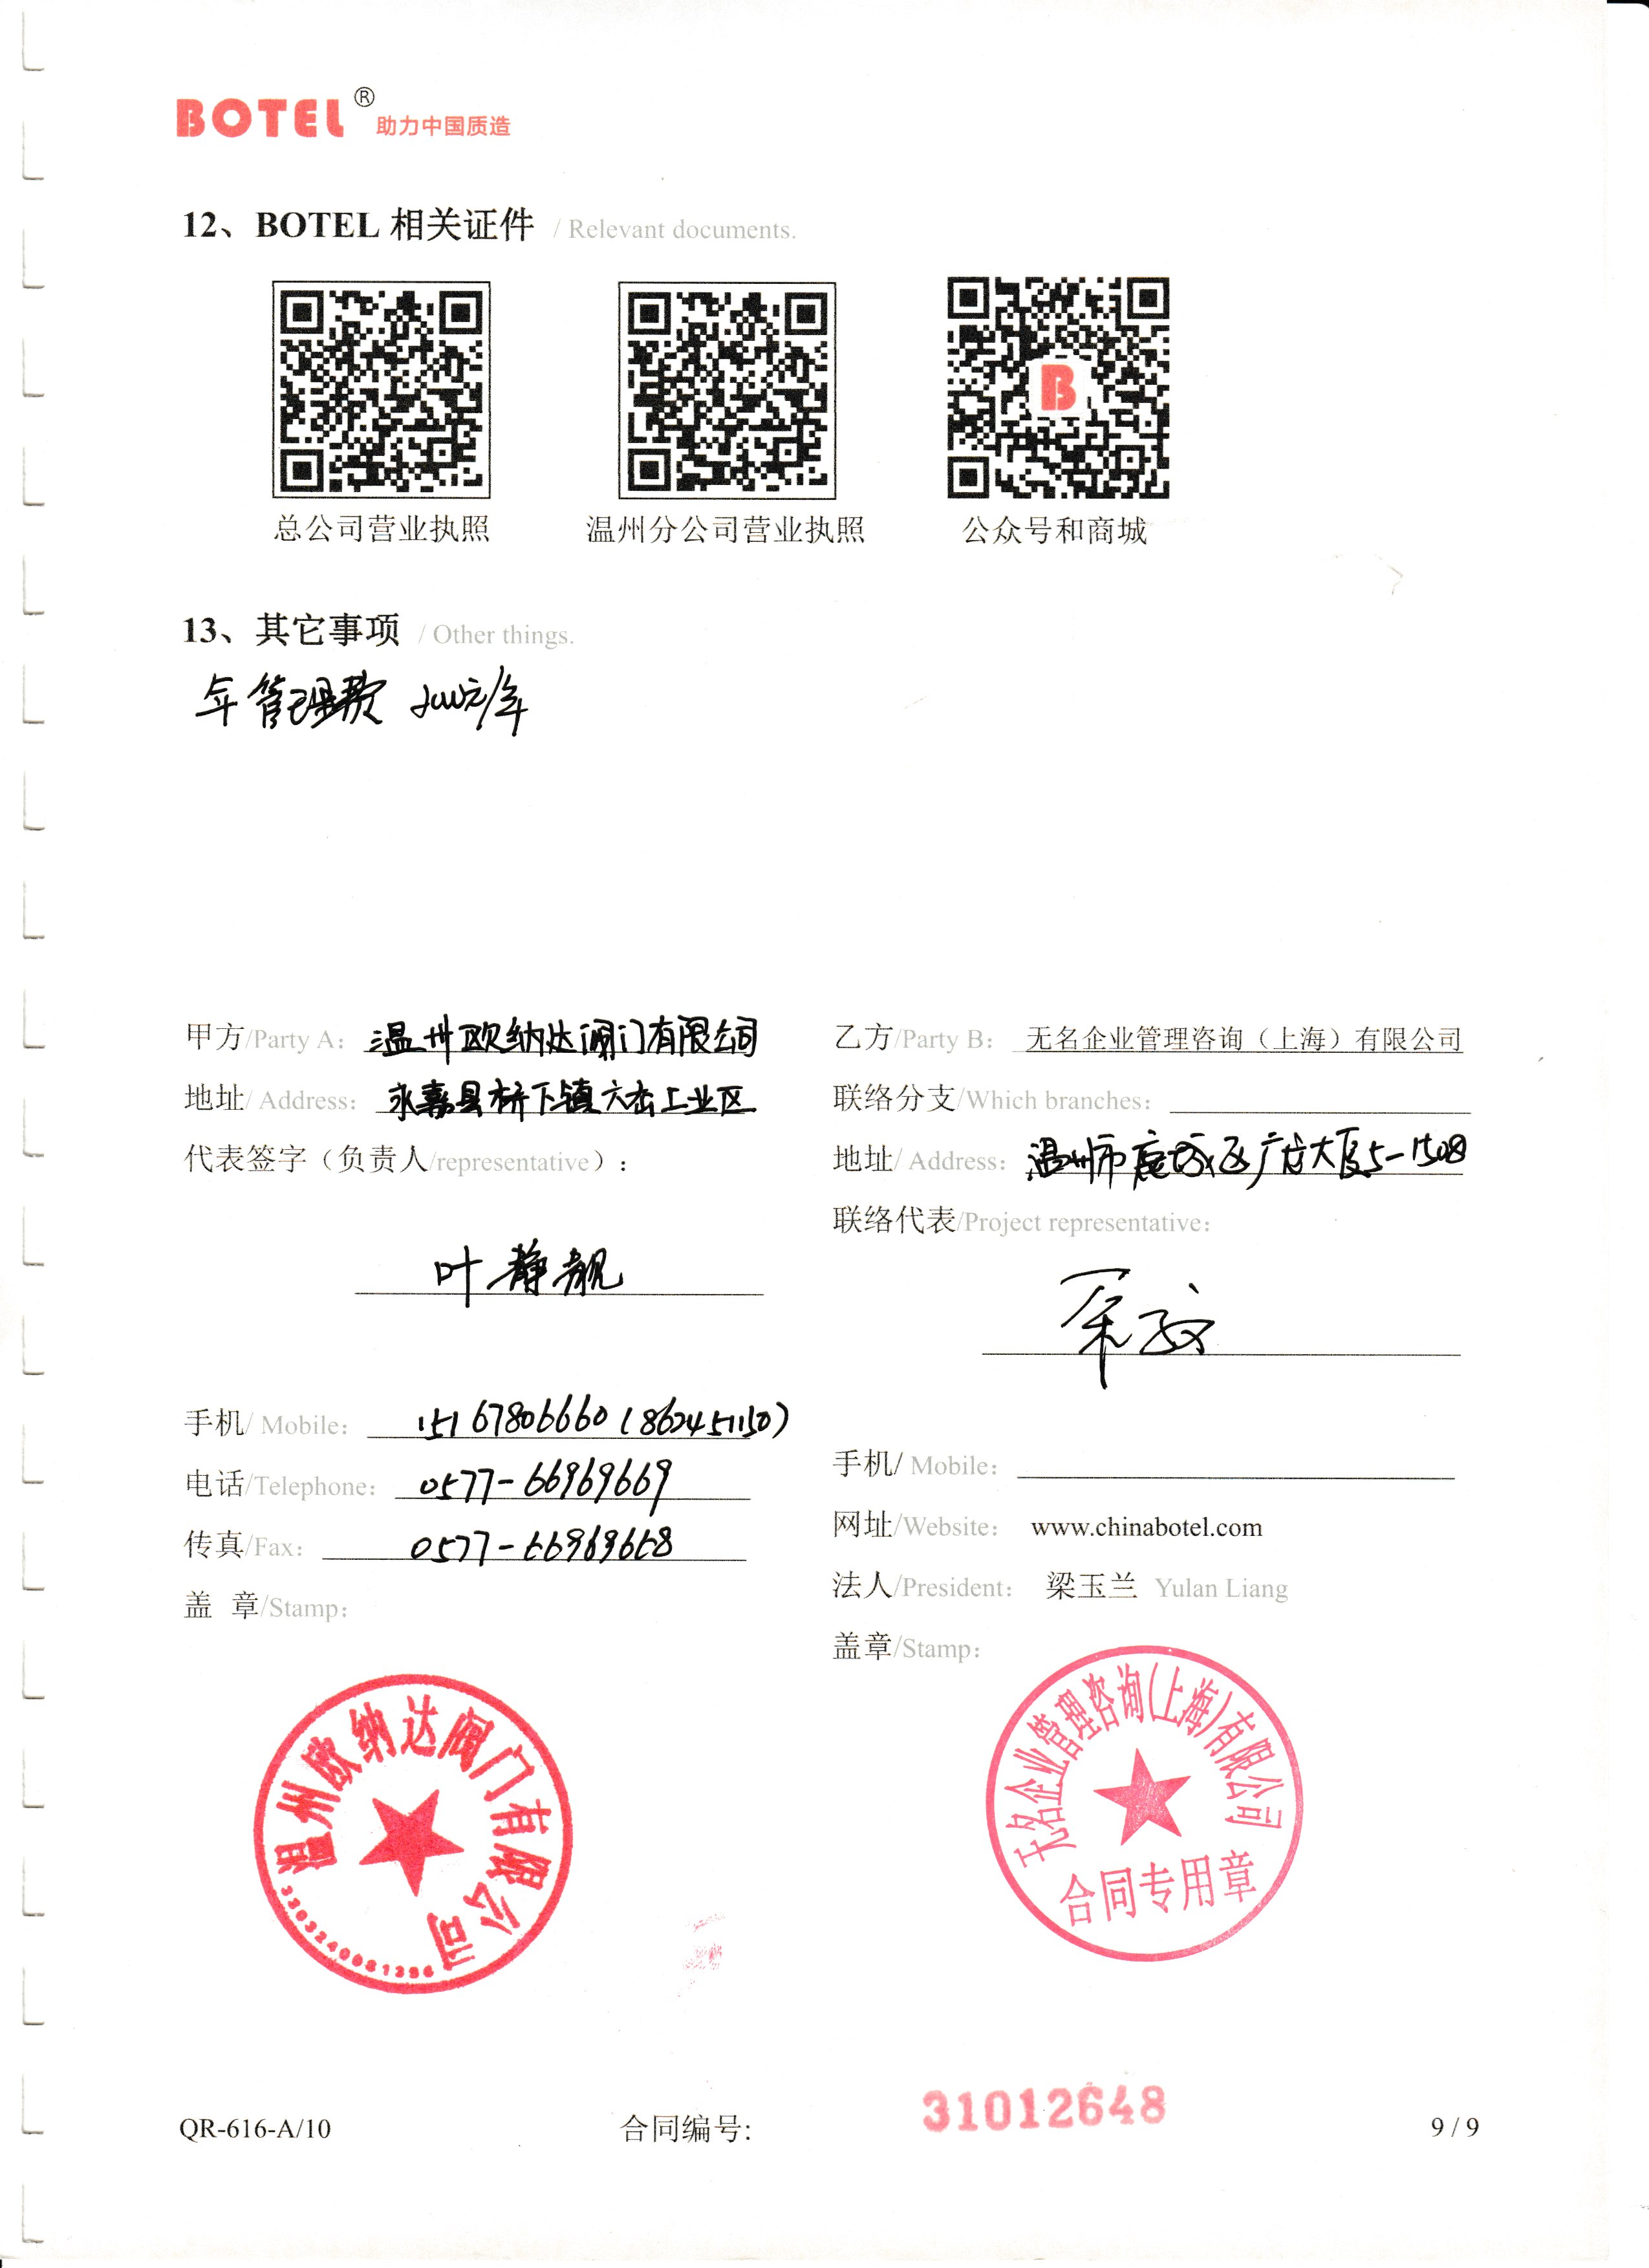 BOTEL® 助力中国质造
12、BOTEL 相关证件 / Relevant documents.
总公司营业执照 温州分公司营业执照 公众号和商城
13、其它事项 / Other things.
年管理费 2000元/年
甲方/Party A： 温州欧纳达阀门有限公司
地址/ Address： 永嘉县桥下镇六岙工业区
代表签字（负责人/representative）：
叶静靓
手机/ Mobile： 15167806660 (862451150)
电话/Telephone： 0577-66969669
传真/Fax： 0577-66969668
盖 章/Stamp：
温州欧纳达阀门有限公司
乙方/Party B： 无名企业管理咨询（上海）有限公司
联络分支/Which branches：
地址/ Address： 温州市鹿城区广信大厦5-1508
联络代表/Project representative：
手机/ Mobile：
网址/Website： www.chinabotel.com
法人/President： 梁玉兰 Yulan Liang
盖章/Stamp：
无名企业管理咨询(上海)有限公司
合同专用章
QR-616-A/10 合同编号: 31012648 9 / 9